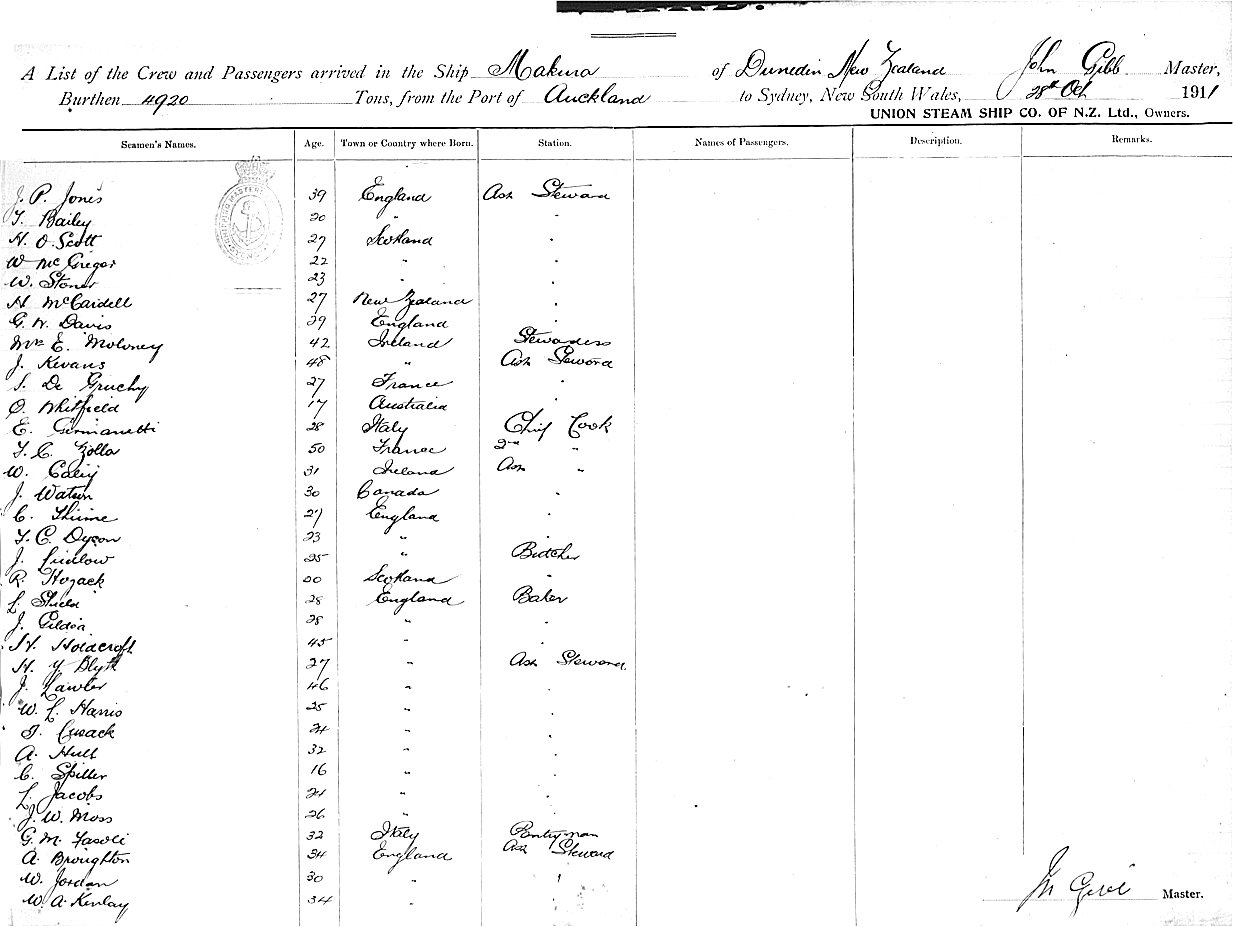 A List of the Crew and Passengers arrived in the Ship Makura of Dunedin New Zealand John Gibb Master,
Burthen 4920 Tons, from the Port of Auckland to Sydney, New South Wales, 28th Oct 1911
UNION STEAM SHIP CO. OF N.Z. Ltd., Owners.
Seamen's Names. Age. Town or Country where Born. Station. Names of Passengers. Description. Remarks.
J. P. Jones 39 England Asst Steward
T. Bailey 20 " "
H. O. Scott 27 Scotland "
W McGregor 22 " "
W. Stoner 23 " "
H McCardell 27 New Zealand "
G. H. Davis 29 England "
Mrs E. Moloney 42 Ireland Stewardess
J. Kevans 48 " Asst Steward
S. De Gruchy 27 France "
O. Whitfield 17 Australia "
E. 28 Italy Chief Cook
T. C. Zolla 50 France 2nd "
W. 31 Ireland Asst "
J. Watson 30 Canada "
C. 27 England "
T. C. Dyson 23 " "
J. 25 " Butcher
R. Hozack 20 Scotland "
L. Shield 28 England Baker
J. Gildea 28 " "
H. Holdcroft 45 " "
H. Y. Blyth 27 " Asst Steward
J. Lawler 46 " "
W. L. Harris 25 " "
J. Cusack 24 " "
A. Hull 32 " "
C. Spiller 16 " "
L. Jacobs 24 " "
J. W. Moss 26 " "
G. M. Fasoli 32 Italy Pantryman
A. Broughton 34 England Asst Steward
W. Jordan 30 " "
W. A. Kenlay 34 " "
Jn Gibb Master.